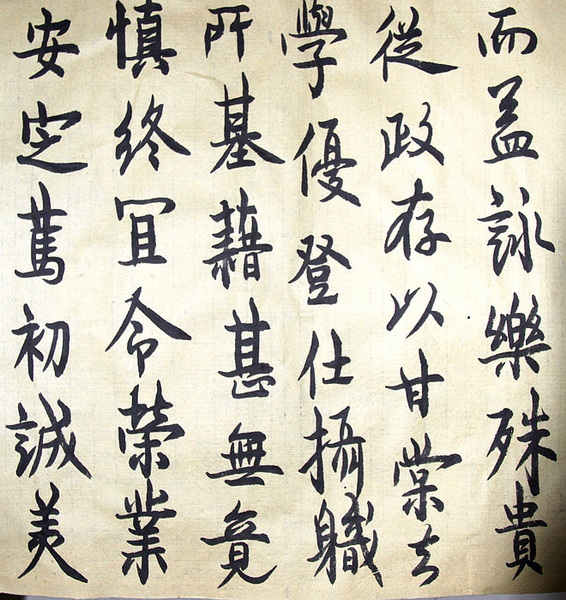 安定篤初誠美
慎終冝令榮業
所基藉甚無竟
學優登仕攝軄
從政存以甘棠去
而益詠樂殊貴